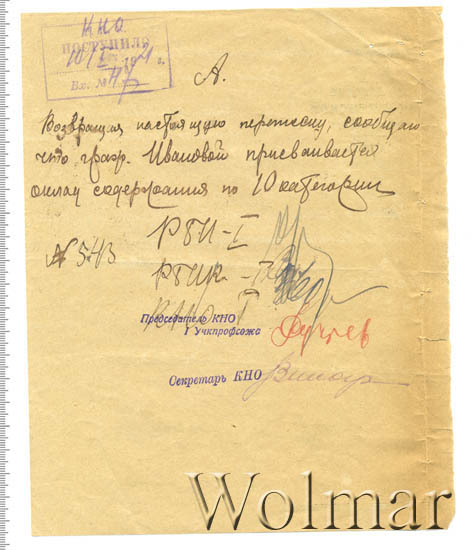 К.Н.О.
ПОСТУПИЛО
Вх. №
А.
Возвращая настоящую переписку, сообщаю
что граф. Ивановой присваивается
оклад содержания по 10 категории
№ 543
РБИ-I
РБИК-
КНО I
Председатель КНО
I Учкпрофсожа
Секретарь КНО
Wolmar